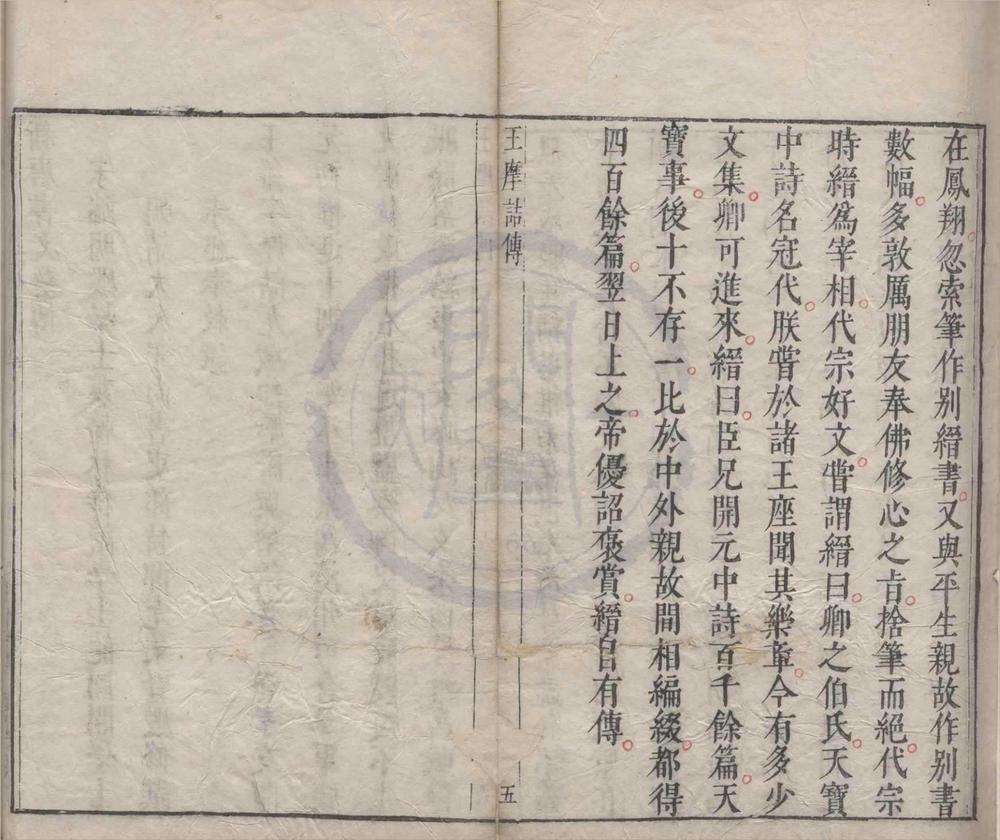 在鳳翔忽索筆作別縉書又與平生親故作別書
數幅多敦厲朋友奉佛修心之㫖捨筆而絕代宗
時縉爲宰相代宗好文甞謂縉曰卿之伯氏天寶
中詩名冠代朕甞於諸王座聞其樂章今有多少
文集卿可進來縉曰臣兄開元中詩百千餘篇天
寶事後十不存一比於中外親故間相編綴都得
四百餘篇翌日上之帝優詔褒賞縉自有傳
王摩詰傳
五